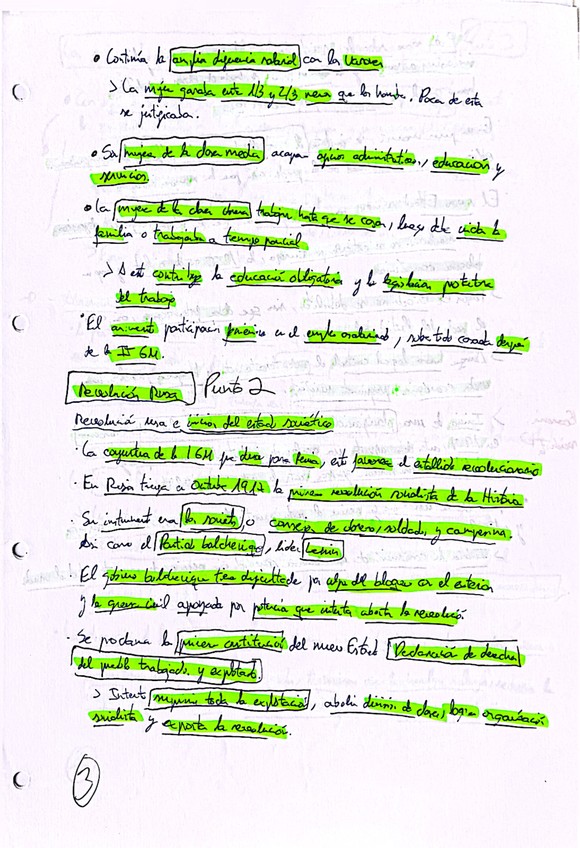 • Continúa la amplia diferencia salarial con los varones
> La mujer ganaba entre 1/3 y 2/3 menos que los hombres. Poca de esta
se justificaba.
• Son mujeres de la clase media acapan oficios administrativos, educación y
servicios
• La mujer de la clase obrera trabaja hasta que se casa, luego debe cuida la
familia o trabajaba a tiempo parcial
> A esto contribuye la educación obligatoria y la legislación protectora
del trabajo
• El aumento participación femenino en el empleo asalariado, sobre todo casada después
de la II GM.
Revolución Rusa Punto 2
Revolución rusa e inicios del estado soviético
· La coyuntura de la I GM que dura para Rusia, este favorece el estallido revolucionario
· En Rusia triunfa en Octubre 1917 la primera revolución socialista de la Historia
· Su instrumento era los soviets o consejos de obreros, soldados y campesinos.
Así como el Partido bolchevique, líder Lenin
· El gobierno bolchevique tiene dificultades por culpa del bloqueo en el exterior
y la guerra civil apoyada por potencias que intenta abortar la revolución.
· Se proclama la primera constitución del nuevo Estado Declaración de derechos
del pueblo trabajador y explotado.
> Intenta suprimir toda la explotación, abolir división de clases, lograr organización
socialista y exportar la revolución.
3